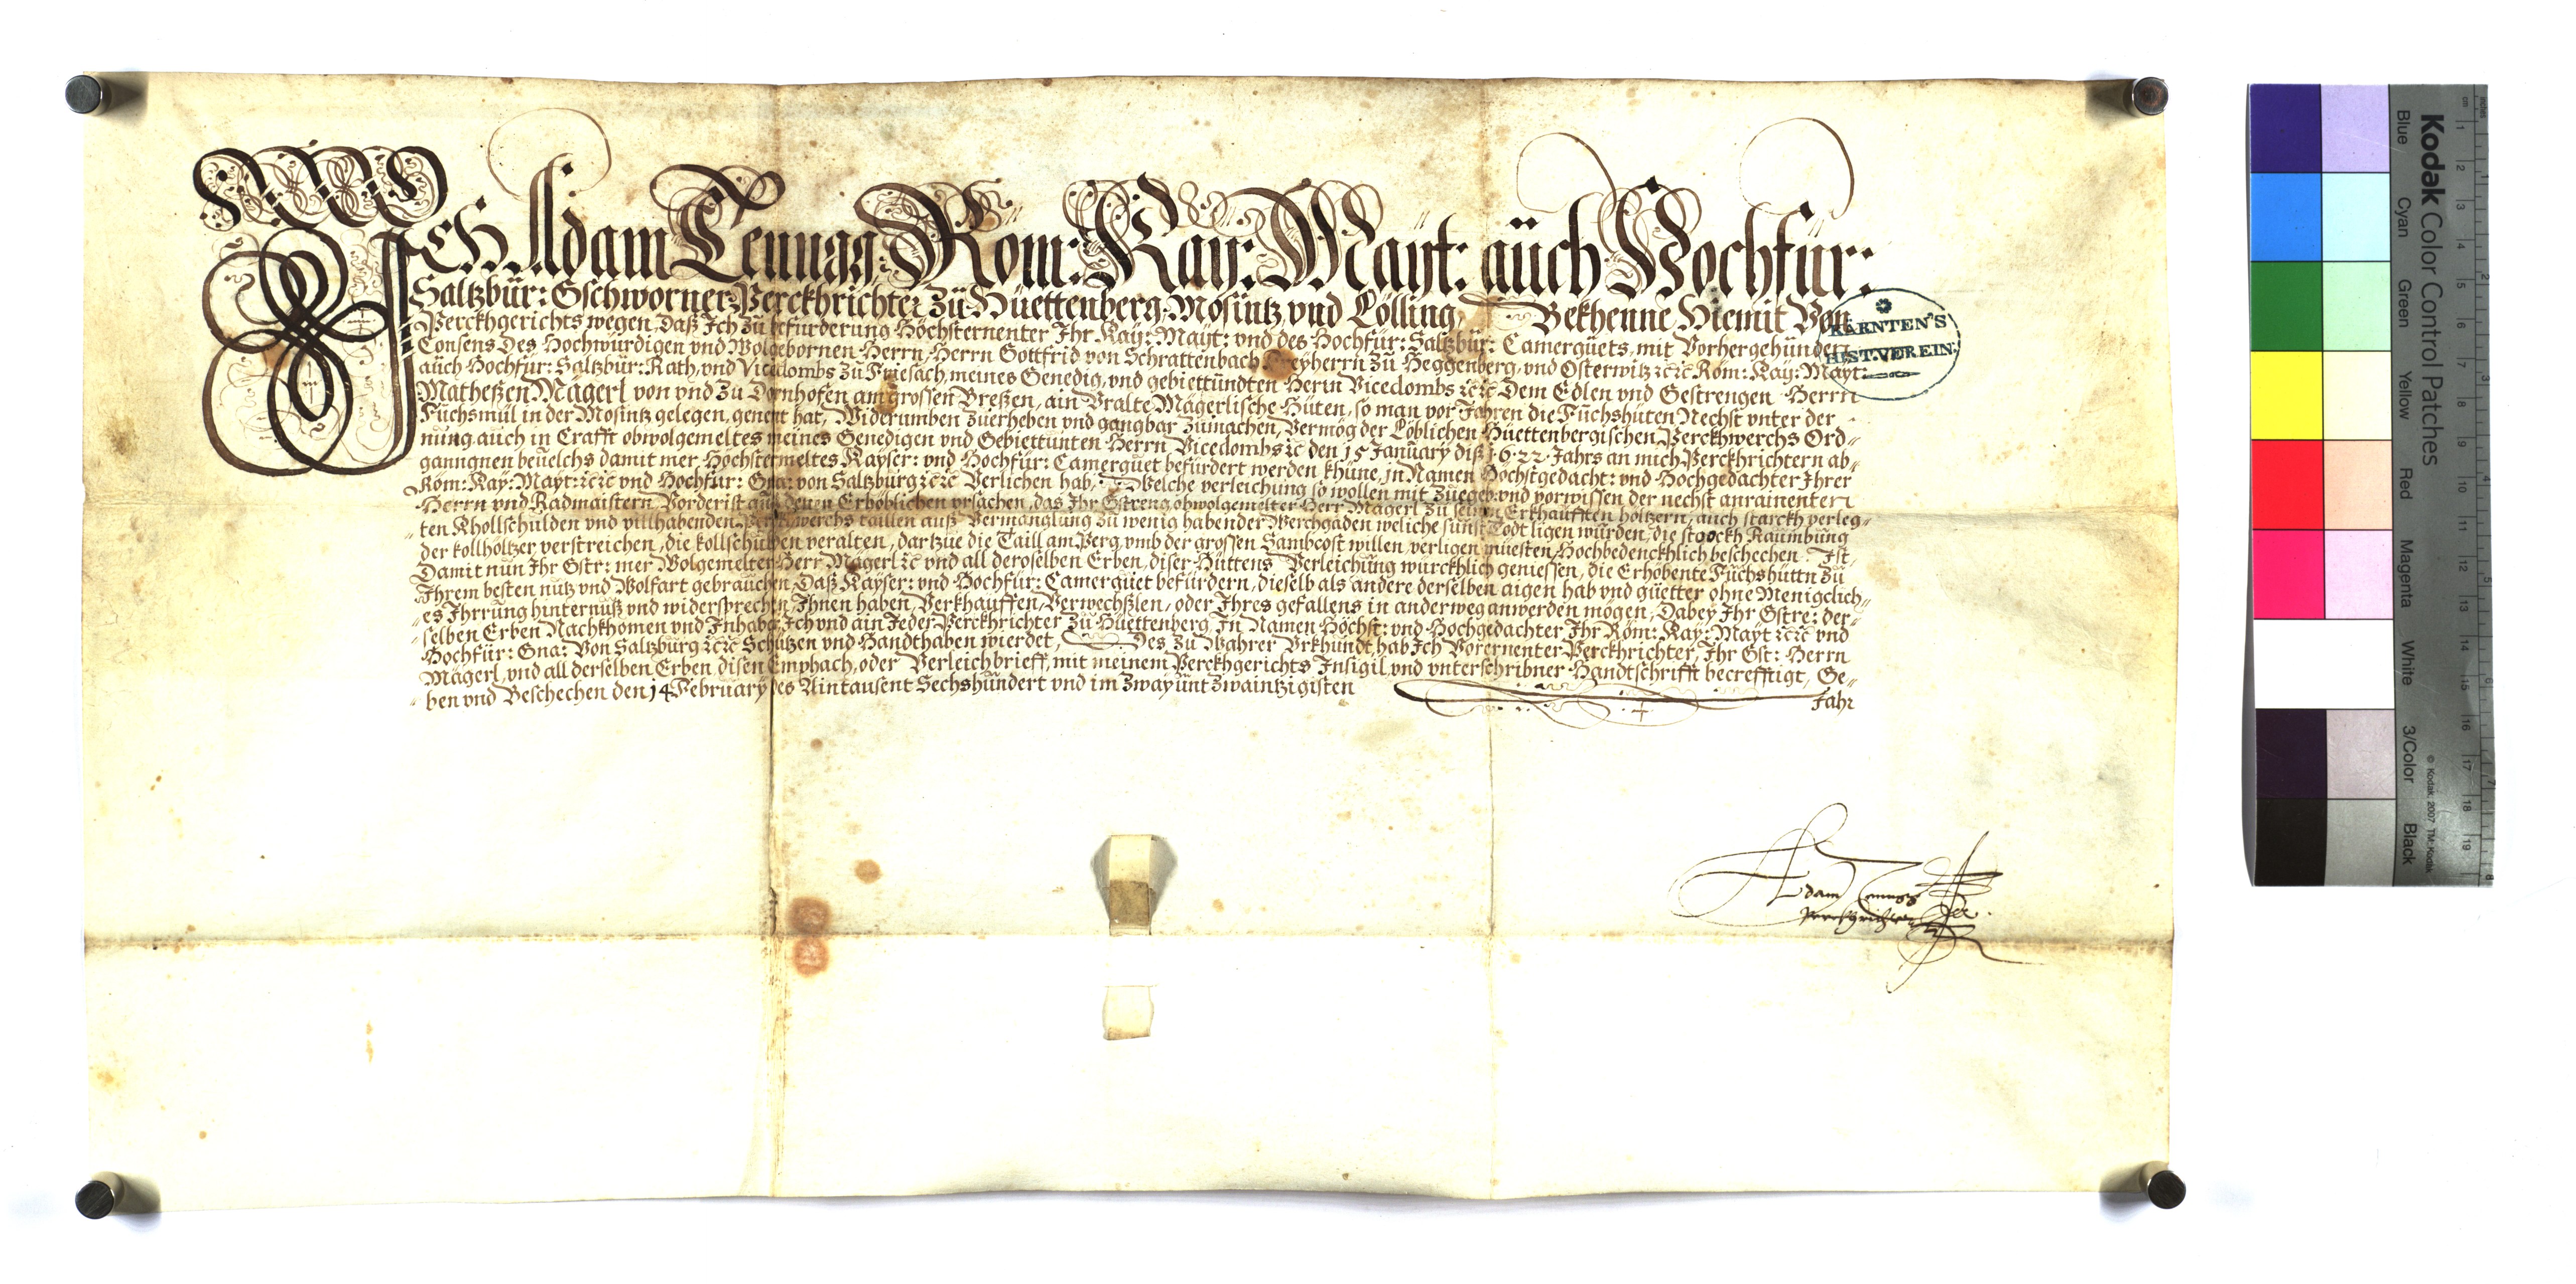 Ich Adam Tenngg: Röm: Kay: Mayt: auch Hochfür:
Saltzbür: Gschworner Perckhrichter Zü Hüettenberg, Mosintz vnd Lölling, Bekhenne Hiemit Von
Perckhgerichts wegen, Daß Ich Zu befürderung Höchsternenter Ihr Kay: Mayt: vnd des Hochfür: Saltzbür: Camergüets, mit Vorhergehünden
Consens Des Hochwürdigen vnd Wolgebornen Herrn, Herrn Gottfrid von Schrattenbach Freyherrn zü Heggenberg, vnd Osterwitz ꝛc ꝛc Röm: Kay: Mayt:
auch Hochfür: Saltzbür: Rath, vnd Vicedombs zü Friesach, meines Genedig, vnd gebiettündten Herrn Vicedombs ꝛc ꝛc Dem Edlen vnd Gestrengen Herrn
Matheßen Mägerl von vnd zü Dornhofen am grossen Breßen, ain Vralte Mägerlische Hüten, so man vor Jahren die Füchshüten Nechst vnter der
Füchsmül in der Mosintz gelegen, genent hat, Widerumben züerheben vnd gangbar zümachen, Vermög der Löblichen Hüettenbergischen Perckhwerchs Ord-
nüng, auch in Crafft obwolgemeltes meines Genedigen vnd Gebiettünten Herrn Vicedombs ꝛc den 15 January diß 1.6.22. Jahrs an mich Perckhrichtern ab-
ganngnen beüelchs damit mer Höchstermeltes Kayser: vnd Hochfür: Camergüet befürdert werden khüne, in Namen Höchstgedacht: vnd Hochgedachter Ihrer
Röm: Kay: Mayt: ꝛc ꝛc vnd Hochfür: Gna: von Saltzbürg ꝛc ꝛc Verlichen hab, Welche verleichüng so wollen mit züegeb: vnd vorwissen der nechst anrainenten
Herrn vnd Radmaistern Vorderist auß denen Erhöblichen vrsachen, das Ihr Gstreng obwolgemelter Herr Mägerl zü seinen Erkhaüfften höltzern, auch starckh verleg-
ten Khollschülden vnd villhabenden Perckhwerchs taillen auß Vermanglüng zü wenig habender Werchgaden weliche sünst Todt ligen würden, die stöckh Raümbüng
der kollhöltzer verstreichen, die kollschülden veralten, dartzüe die Taill am Perg vmb der grossen Sambcost willen verligen müesten, Hochbedenckhlich beschechen Ist,
Damit nün Ihr Gstr: mer Wolgemelter Herr Mägerl ꝛc vnd all deroselben Erben, diser Hüttens Verleichüng würckhlich geniessen, die Erhöbente Füchshüttn zü
Ihrem besten nütz vnd Wolfart gebraüchen, Daß Kayser: vnd Hochfür: Camergüet befürdern, dieselb als andere derselben aigen hab vnd güetter ohne Menigclich-
es Ihrrüng hinternüß vnd widersprechen Ihnen haben, Verkhaüffen, Verwechßlen, oder Ihres gefallens in anderweg anwerden mögen, Dabey Ihr Gstre: der-
selben Erben Nachkhomen vnd Inhaber, Ich vnd ain Ieder Perckhrichter zü Hüettenberg In Namen Höchst: vnd Hochgedachter Ihr Röm: Kay: Mayt ꝛc ꝛc vnd
Hochfür: Gna: Von Saltzbürg ꝛc ꝛc Schützen vnd Handthaben wierdet, Des zü Wahrer Vrkhündt, hab Ich Vorernenter Perckhrichter, Ihr Gst: Herrn
Mägerl, vnd all derselben Erben disen Emphach, oder Verleichbrieff, mit meinem Perckhgerichts Insigil vnd vnterschribner Handtschrifft becrefftigt, Ge-
ben vnd Beschechen den 14 February des Aintausent Sechshündert vnd im Zwayünt Zwaintzigisten Jahr
KÄRNTEN'S
HIST. VEREIN.
Adam Tenngg
Perckhrichter
Kodak Color Control Patches
Blue Cyan Green Yellow Red Magenta White 3/Color Black
© Kodak, 2007 TM: Kodak
cm 1 2 3 4 5 6 7 8 9 10 11 12 13 14 15 16 17 18 19
inches 1 2 3 4 5 6 7 8